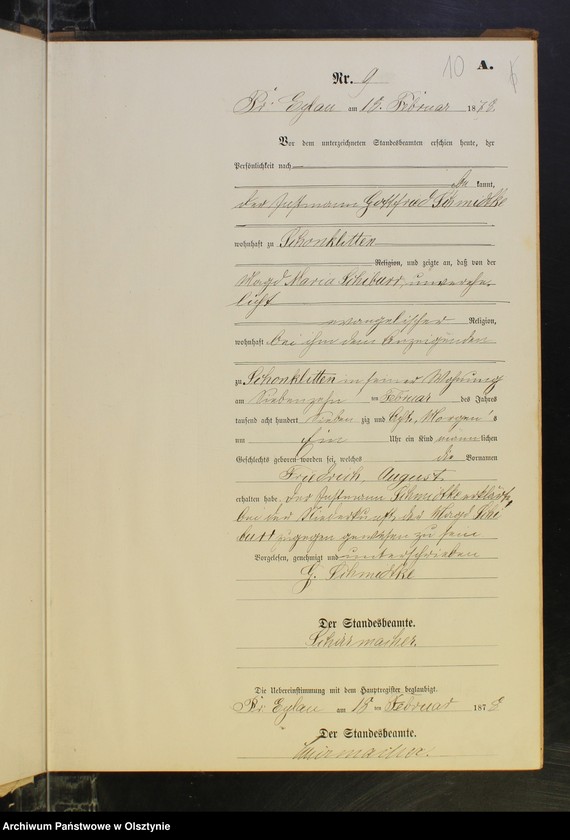 10 A.
Nr. 9
Pr. Eylau am 18. Februar 1878.
Vor dem unterzeichneten Standesbeamten erschien heute, der
Persönlichkeit nach
be kannt,
der Instmann Gottfried Schmidtke
wohnhaft zu Schonklitten
Religion, und zeigte an, daß von der
Magd Maria Schiburr, unverehe-
licht
evangelischer Religion,
wohnhaft bei ihm dem Anzeigenden
zu Schonklitten in seiner Wohnung
am Siebenzehn ten Februar des Jahres
tausend acht hundert sieben zig und Acht, Morgens
um Ein Uhr ein Kind männlichen
Geschlechts geboren worden sei, welches die Vornamen
Friedrich, August
erhalten habe. Der Instmann Schmidtke erklärte,
bei der Niederkunft der Magd Schi
burr zugegen gewesen zu sein
Vorgelesen, genehmigt und unterschrieben
G. Schmidtke
Der Standesbeamte.
Schirmacher.
Die Uebereinstimmung mit dem Hauptregister beglaubigt.
Pr. Eylau am 18 ten Februar 1878
Der Standesbeamte.
Schirmacher.
Archiwum Państwowe w Olsztynie